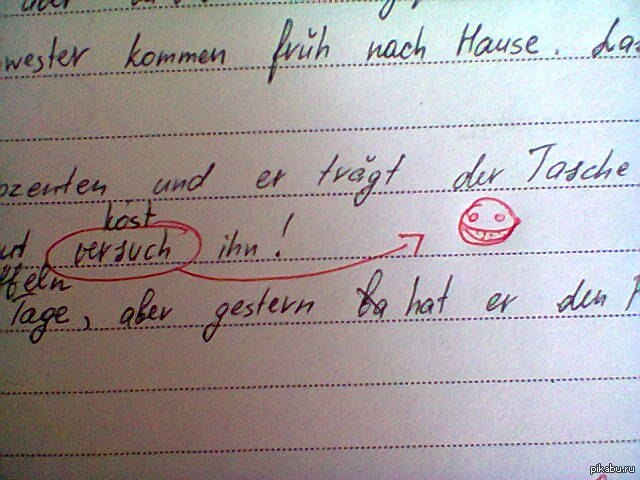 wester kommen früh nach Hause.
zenten und er trägt der Tasche
kost
versuch ihn!
feln
Tage, aber gestern hat er den
pikabu.ru